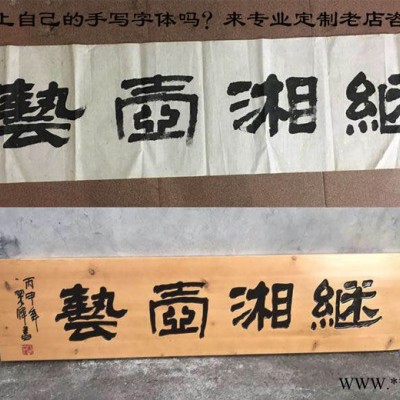 上自己的手写字体吗？来专业定制老店咨
継湘壺藝
継湘壺藝
丙申年
www.*